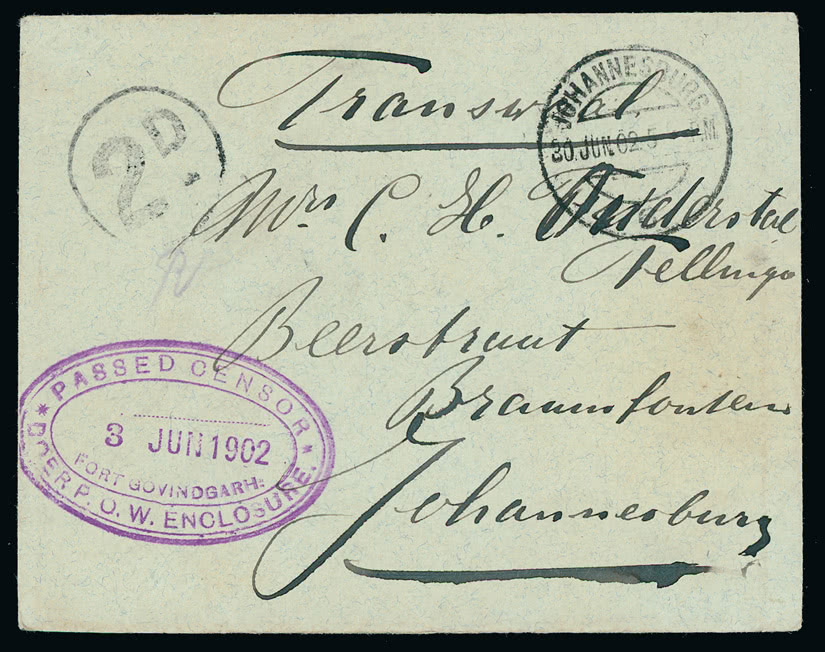 Transvaal
JOHANNESBURG
30 JUN. 02 5 PM
2D.
Mrs C. H.
Beerstraat
Braamfontein
Johannesburg
* PASSED CENSOR *
3 JUN 1902
FORT GOVINDGARH.
BOER P. O. W. ENCLOSURE.